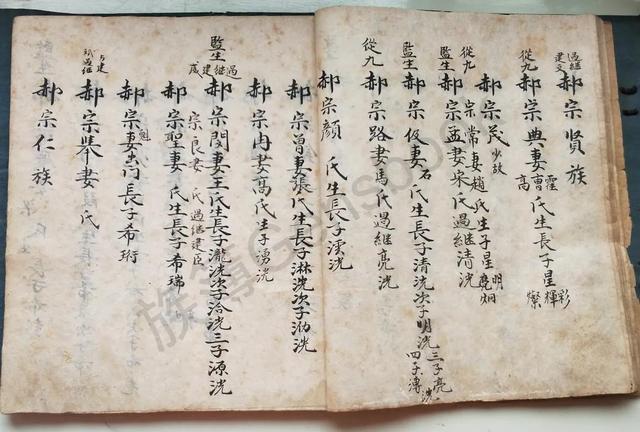 過继
建文
郝宗賢族
從九
郝宗典妻霍曹高氏生長子星彩輝燦
郝宗茂少故
從九
宗常妻趙氏生子星明堯炯
監生
郝宗孟妻宋氏過继清洸
監生
郝宗伋妻石氏生長子清洸次子明洸三子亮洸四子溥
從九
郝宗路妻馬氏過继亮洸
郝宗顏 氏生長子溪洸
郝宗曾妻張氏生長子淋洸次子泑洸
郝宗冉妻高氏生子湧洸
監生
過继建成
郝宗閔妻王氏生長子瀧洸次子洽洸三子源洸
宗良妻 氏過继建臣
郝宗聖妻 氏生長子希瑞
郝宗魁妻 氏長子希珩
郝宗舉妻 氏
郝宗仁族
族譜